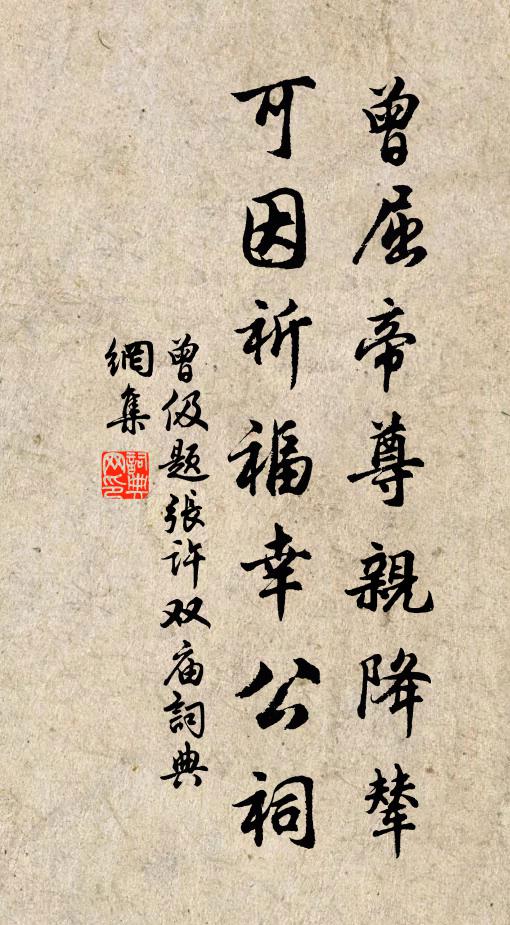 曾屈帝尊親降輦
可因祈福幸公祠
曾伋題張許双庙詞典
網集
詞典網印